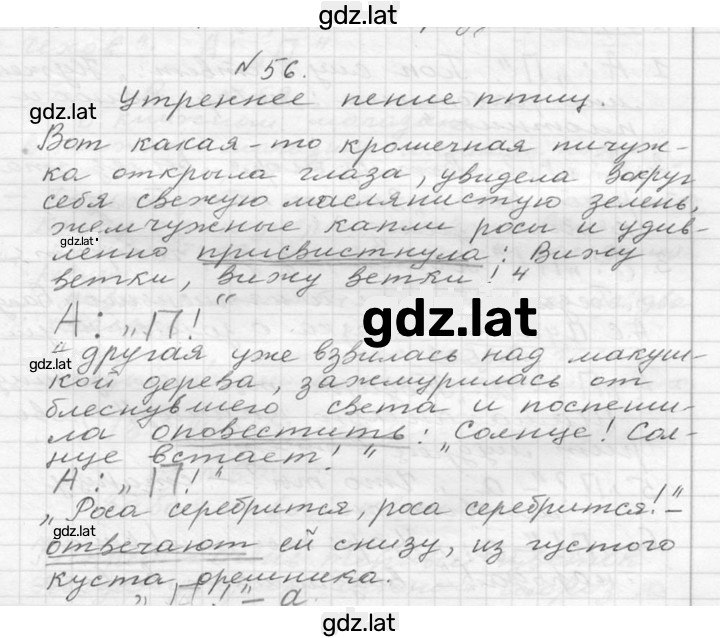 gdz.lat
№ 56.
Утреннее пение птиц.
gdz.lat
Вот какая-то крошечная пичуж-
ка открыла глаза, увидела вокруг
себя свежую маслянистую зелень,
жемчужные капли росы и удив-
gdz.lat
ленно присвистнула: Вижу
ветки, вижу ветки!"
А: „П!"
gdz.lat
А другая уже взвилась над макуш-
gdz.lat
кой дерева, зажмурилась от
блеснувшего света и поспеши-
ла оповестить: „Солнце! Сол-
нце встает!"
А: „П!"
„Роса серебрится, роса серебрится!"-
gdz.lat
отвечают ей снизу, из густого
куста орешника.
„П!" - а.
gdz.lat